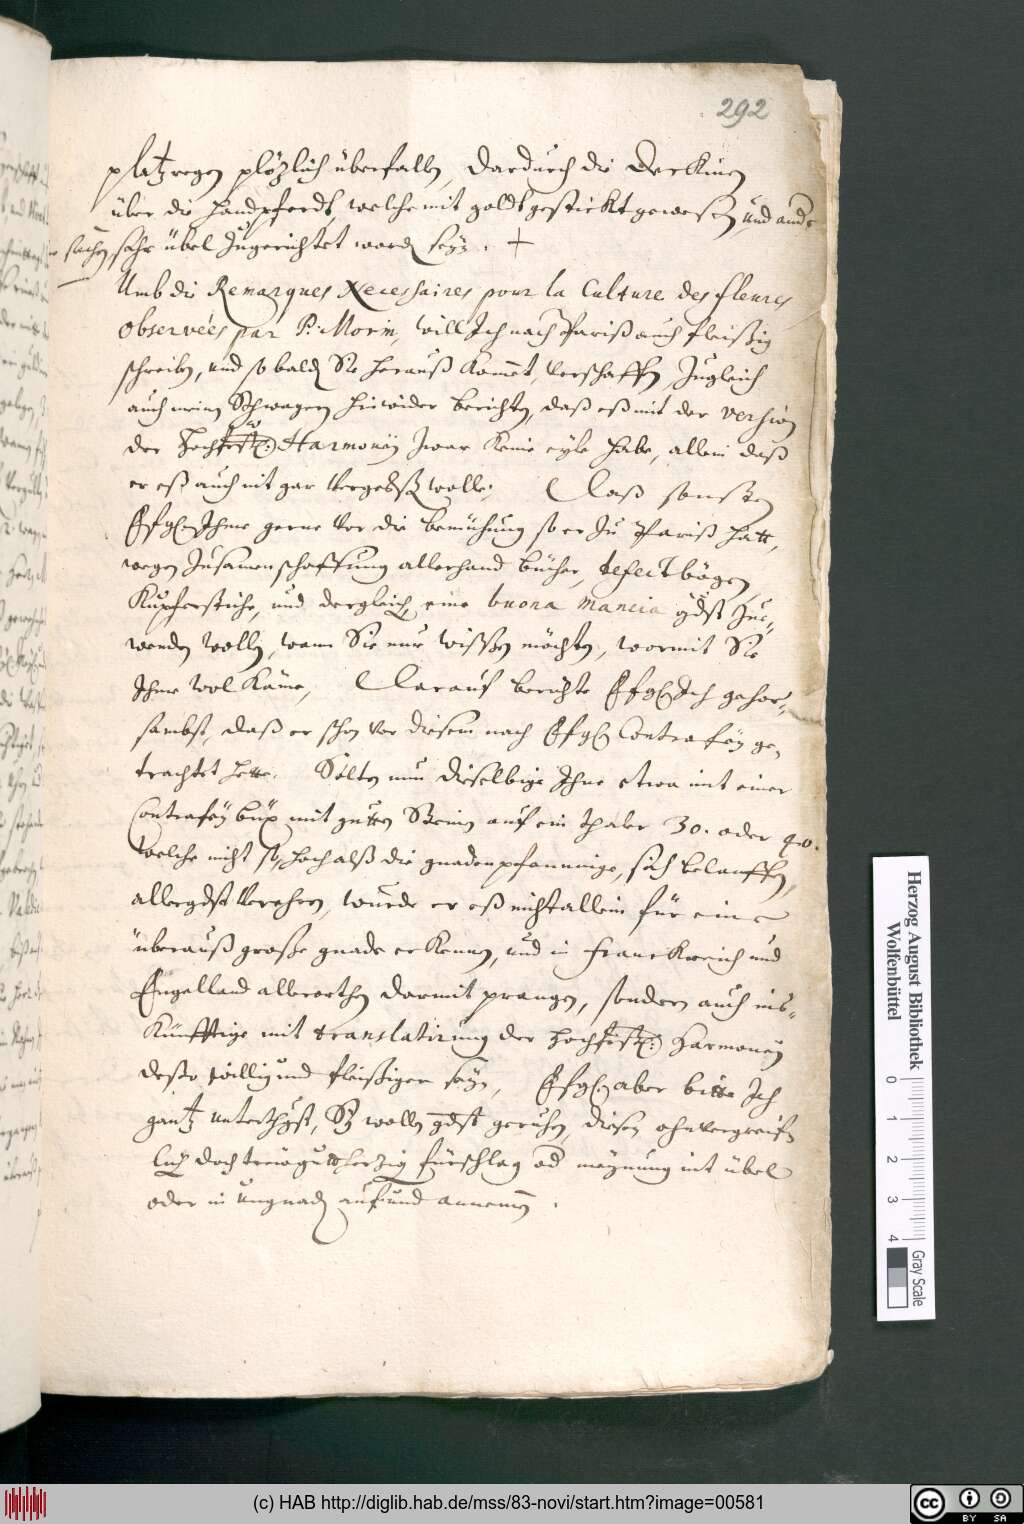 292
platzregen plözlich überfallen, dardurch die Deckinen
über die handpferdt, welche mit goldt gestickt gewesen und ande
sachen sehr übel Zugerichtet worden seyn. +
Umb die Remarques Necessaires pour la Culture des fleures
observées par P: Morin, will Ich nach Pariß auch fleißig
schreiben, und so baldt Sie herauß kommet, verschaffen, Zugleich
auch meinen Schwagern hinwider berichten, daß eß mit der version
der Hochfürstl: Harmoney Zwar keine eyle habe, allein daß
er eß auch nit gar vergeßen wolle; Daß sonsten
EfgEn Ihme gerne vor die bemühung so er Zu Pariß hatt,
wegen Zusamenschaffung allerhand bücher, defect bögen,
Kupferstiche, und dergleich, eine buona mancia gdst Zue,
wenden wollen, wann Sie nur wissen möchten, wormit Sie
Ihme wol käme, Darauf berichte EfgEn Ich gehor,
sambst, daß er schon vor diesem nach EfgEn Contrafey ge,
trachtet hette. Solten nun dieselbige Ihne etwa mit einer
Contrafey büx mit guten Steinen auf ein thaler 30. oder 40.
welche nicht so hoch alß die gnadenpfenninge, sich belauffen,
allergdst verehren, würde er eß nicht allein für eine
überauß große gnade erkennen, und in Franckreich und
Engelland allerorthen darmit prangen, sondern auch ins,
künfftige mit translatirung der Hochfürstl: Harmoney
desto willig und fleißiger seyn, EfgEn aber bitte Ich
gantz unterthgst, Sie wollen gdst geruhen, diesen ohnvergreif
lich doch treugutherzig fürschlag od meynung nit übel
oder in ungnaden auf und annemen.
Herzog August Bibliothek
Wolfenbüttel
0 1 2 3 4
Gray Scale
(c) HAB http://diglib.hab.de/mss/83-novi/start.htm?image=00581
cc BY SA